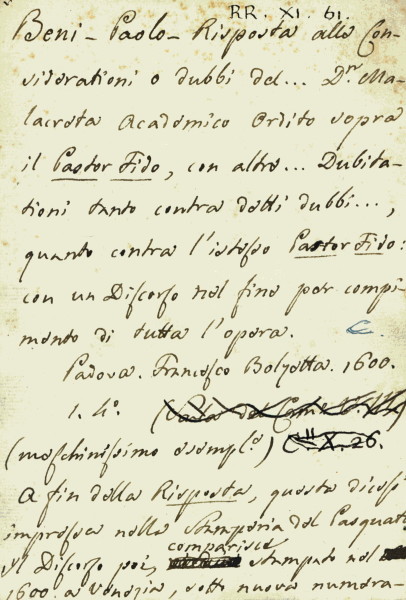 RR. XI. 61.
Beni - Paolo - Risposta alle Con-
siderationi o dubbi del... D.r Ma-
lacreta Academico Ordito sopra
il Pastor Fido, con altre... Dubita-
tioni tanto contra detti dubbi...,
quanto contra l'istesso Pastor Fido:
con un Discorso nel fine per compi-
mento di tutta l'opera. C.
Padova. Francesco Bolzetta. 1600.
1. 4°.
(meschinissimo esempl.e) X. 26.
A fin della Risposta, questa dicesi
impressa nella Stamperia del Pasquati
Il Discorso poi, comparisce stampato nel
1600. a Venezia, sotto nuova numera-